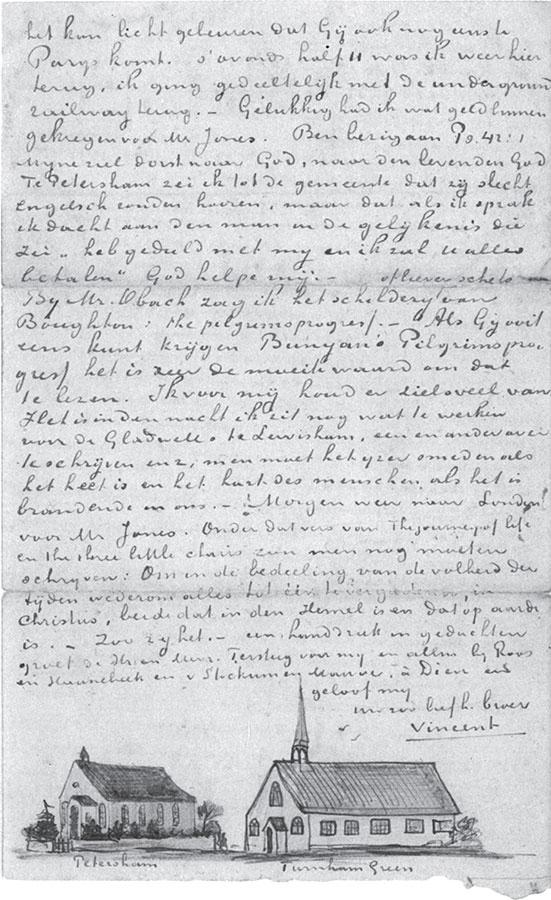 het kan licht gebeuren dat Gij ook nog eens te
Parys komt. s'avonds half 11 was ik weer hier
terug, ik ging gedeeltelijk met de underground
railway terug. – Gelukkig had ik wat geld binnen
gekregen voor Mr Jones. Ben bezig aan Ps. 42:1
Myne ziel dorst naar God, naar den levenden God
Te Petersham zei ik tot de gemeente dat zij slecht
Engelsch zouden hooren, maar dat als ik sprak
ik dacht aan den man in de gelijkenis die
zei „heb geduld met my en ik zal U alles
betalen" God helpe mij. –
By Mr. Obach zag ik het schilderij van
Boughton: the pilgrimsprogress. – Als Gij ooit
eens kunt krijgen Bunyan's Pilgrimspro-
gress het is zeer de moeite waard om dat
te lezen. Ik voor mij houd er zielsveel van
Het is in den nacht ik zit nog wat te werken
voor de Gladwells te Lewisham, een en ander over
te schrijven enz, men moet het yzer smeden als
het heet is en het hart des menschen als het is
brandende in ons. – Morgen weer naar London
voor Mr Jones. Onder dat vers van The journey of life
en The three little chairs zou men nog moeten
schrijven: Om in de bedeeling van de volheid der
tijden wederom alles tot één te vergaderen, in
Christus, beide dat in den Hemel is en dat op aarde
is. – Zoo zy het. – een handdruk in gedachten
groet de Hr en Mevr. Tersteeg voor my en allen by Roos
en Haanebeek en v Stockum en Mauve, à Dieu en
geloof my
uw zoo liefh. broer
Vincent
Petersham
Turnham Green